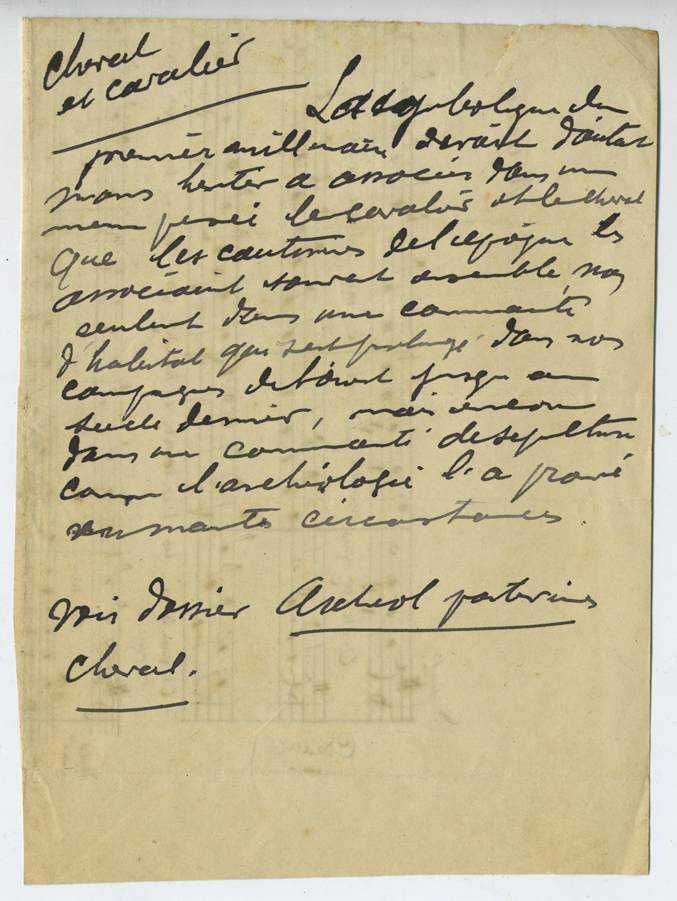 Cheval
et cavalier
La symbolique du
premier millénaire devait d'autant
moins hésiter à associer dans une
même pensée le cavalier et le cheval
que les coutumes de l'époque les
associaient souvent ensemble, non
seulement dans une communauté
d'habitat qui s'est prolongé dans nos
campagnes de l'ouest jusqu'au
siècle dernier, mais encore
dans une communauté de sépulture
comme l'archéologie l'a prouvé
en maintes circonstances.
Voir dossier Archéol
cheval.